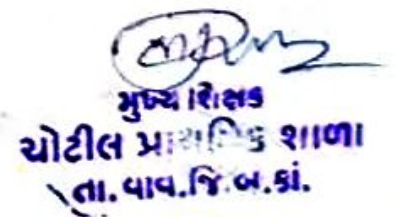 મુખ્ય શિક્ષક
ચોટીલ પ્રાથમિક શાળા
તા. વાવ.જિ.બ.કાં.